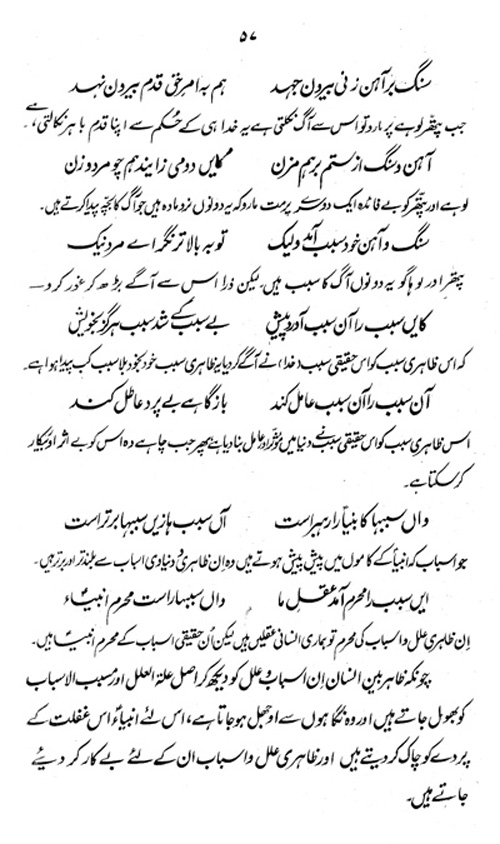 ۵۷
سنگ بر آہن زنی بیروں جہد ہم بہ امرِ حق قدم بیروں نہد
جب پتھر لوہے پر مارو تو اس سے آگ نکلتی ہے یہ خدا ہی کے حکم سے اپنا قدم باہر نکالتی ہے۔
آہن و سنگ از ستم برہم مزن کایں دو می زایند ہم چو مرد و زن
لوہے اور پتھر کو بے فائدہ ایک دوسرے پر مت مارو کہ یہ دونوں نر و مادہ ہیں جو آگ کا بچہ پیدا کرتے ہیں۔
سنگ و آہن خود سبب آمد ولیک تو بہ بالا تر نگر اے مرد نیک
پتھر اور لوہا گو یہ دونوں آگ کا سبب ہیں۔ لیکن ذرا اس سے آگے بڑھ کر غور کرو۔
کایں سبب را آن سبب آورد پیش بے سبب کے شد سبب ہرگز بخویش
کہ اس ظاہری سبب کو اس حقیقی سبب (خدا) نے آگے کر دیا یہ ظاہری سبب خود بخود بلا سبب کب پیدا ہوا ہے۔
آن سبب را آن سبب عامل کند باز گاہے بے پر و عاطل کند
اس ظاہری سبب کو اس حقیقی سبب نے دنیا میں مؤثر اور عامل بنا دیا ہے پھر جب چاہے وہ اس کو بے اثر اور بیکار
کر سکتا ہے۔
واں سببہا کانبیا را رہبر است آں سبب ہا زیں سببہا برتر است
جو اسباب کہ انبیاؑ کے کاموں میں پیش پیش ہوتے ہیں وہ اِن ظاہری و دنیاوی اسباب سے بلند تر اور برتر ہیں۔
ایں سبب را محرم آمد عقلِ ما واں سببہا راست محرم انبیاءؑ
اِن ظاہری علل و اسباب کی محرم تو ہماری انسانی عقلیں ہیں لیکن اُن حقیقی اسباب کے محرم انبیاؑ ہیں۔
چونکہ ظاہر بین انسان اِن اسباب و علل کو دیکھ کر اصل علۃ العلل اور مسبب الاسباب
کو بھول جاتے ہیں اور وہ نگاہوں سے اوجھل ہو جاتا ہے، اس لئے انبیاءؑ اس غفلت کے
پردے کو چاک کر دیتے ہیں اور ظاہری علل و اسباب ان کے لئے بے کار کر دیئے
جاتے ہیں۔